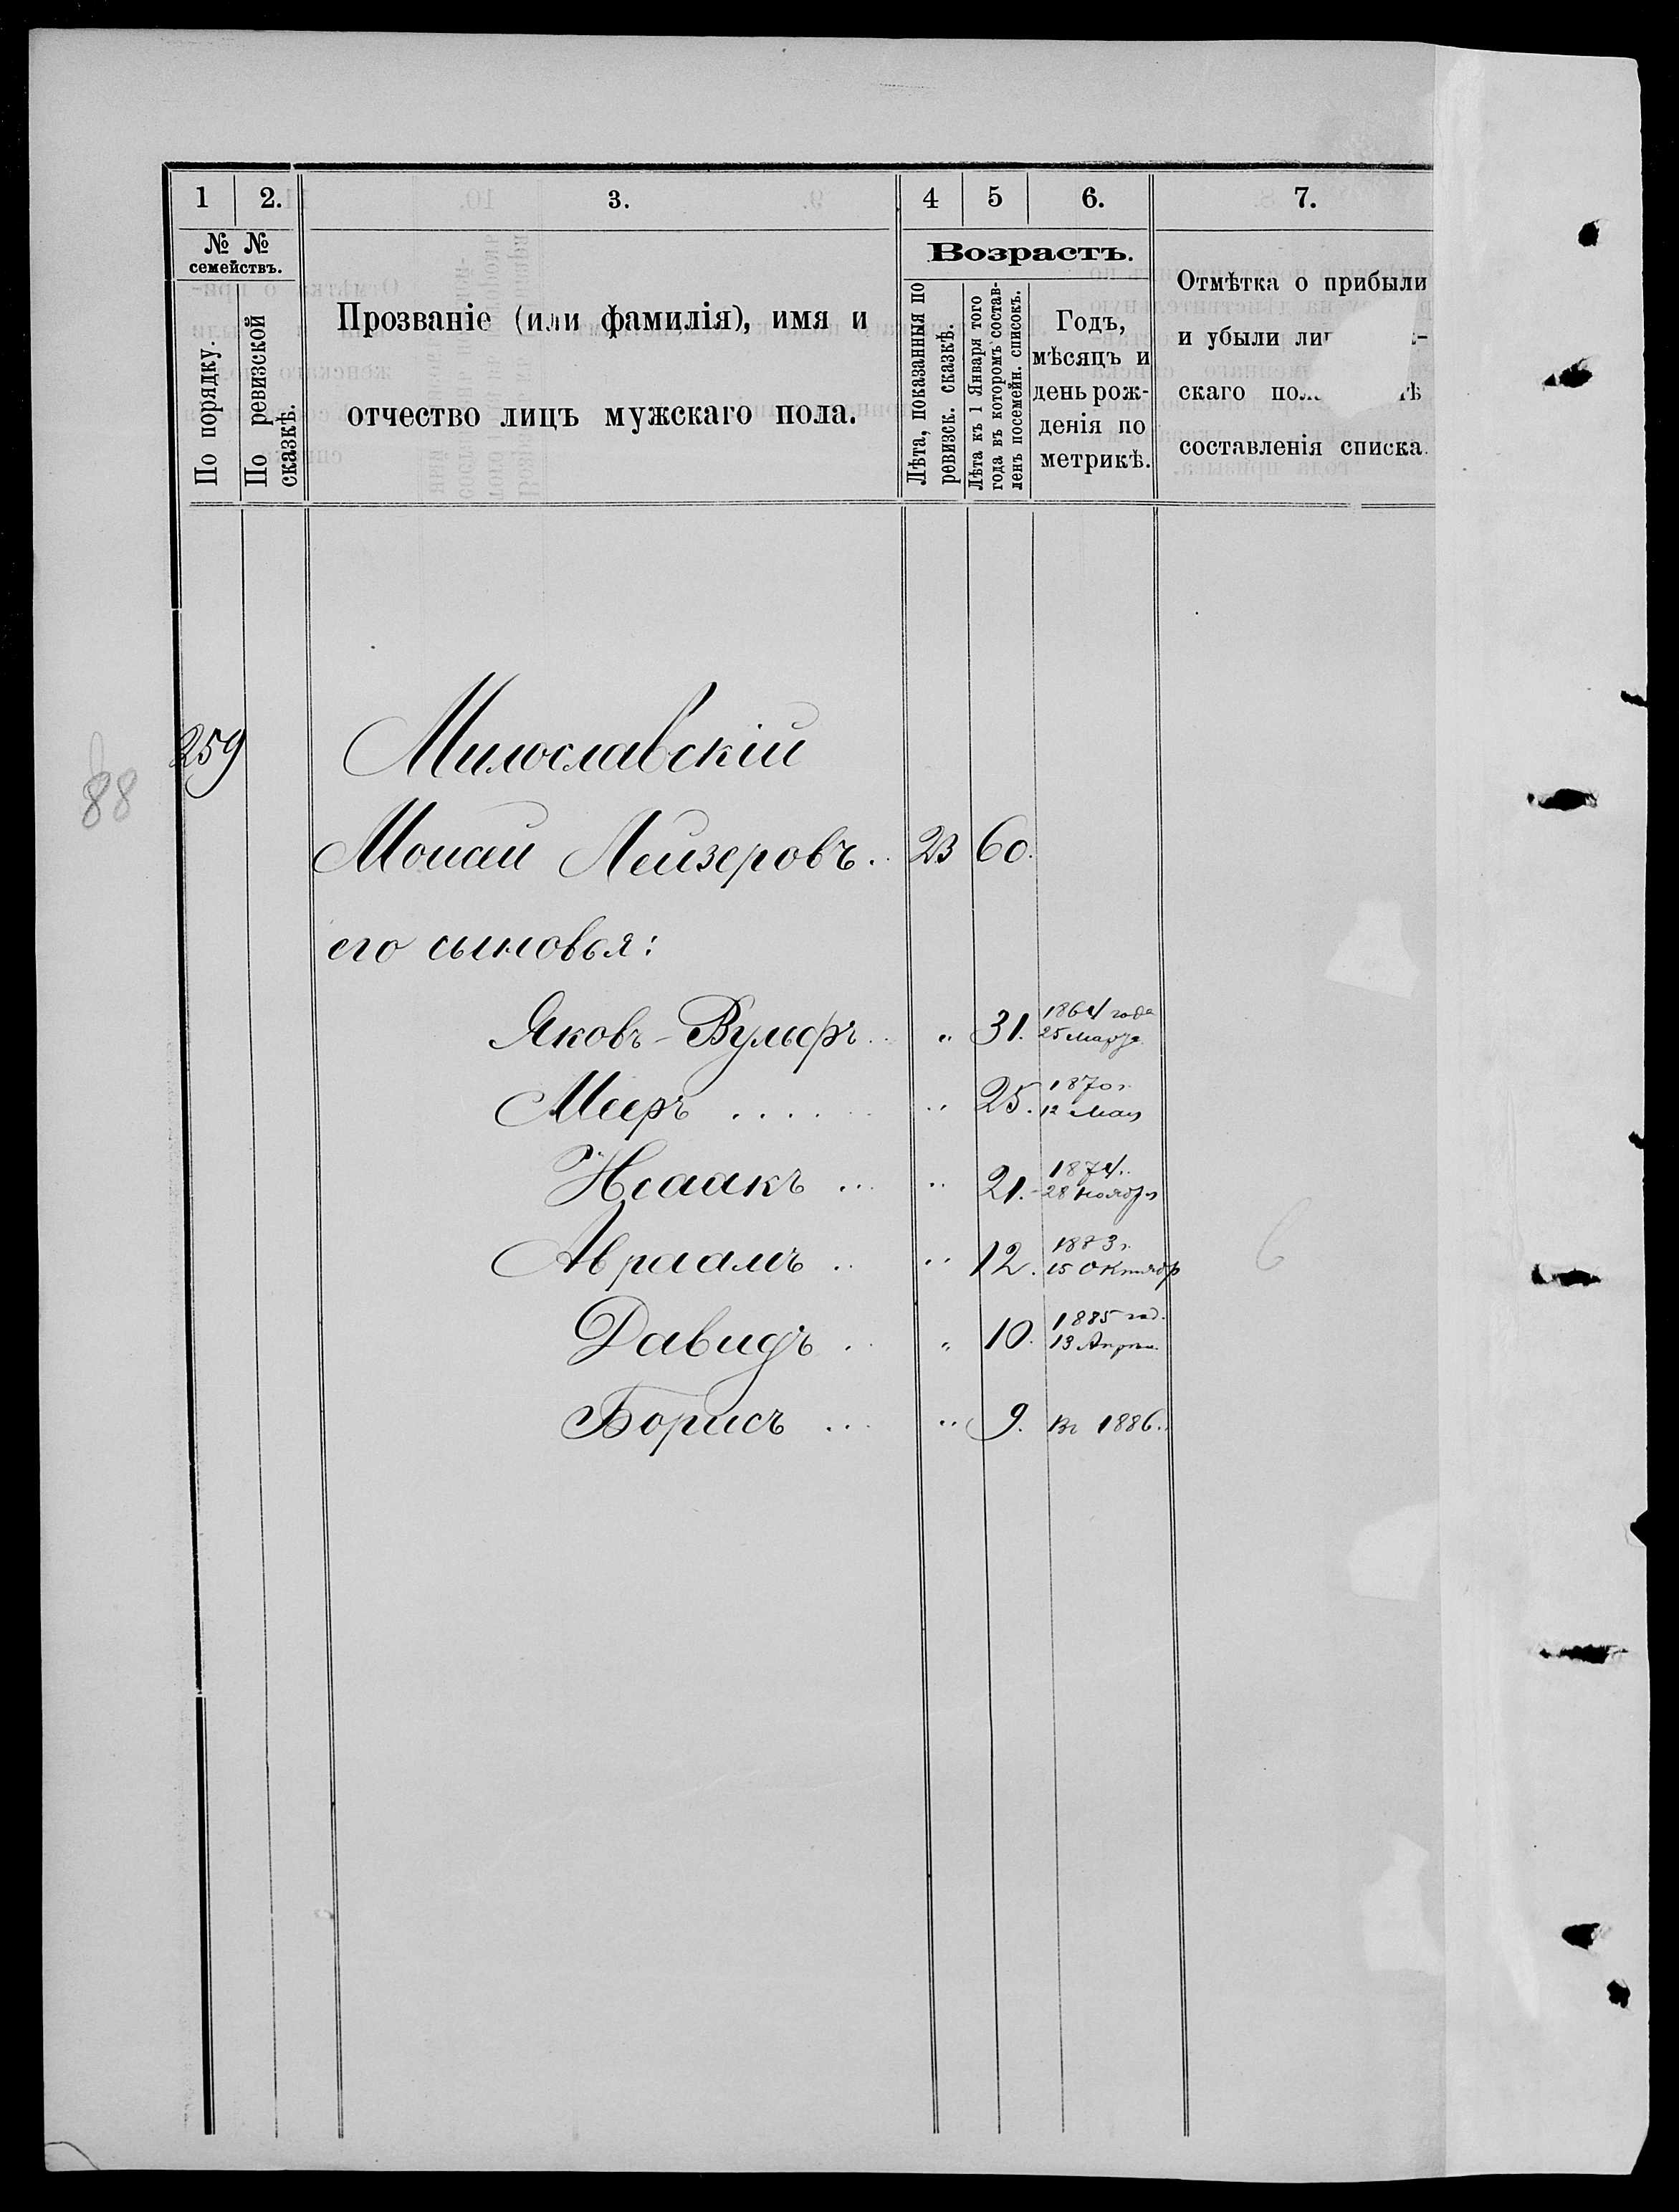 1 2. 3. 4 5 6. 7.
№ №
семействъ.
По порядку.
По ревизской
сказкѣ.
Прозваніе (или фамилія), имя и
отчество лицъ мужскаго пола.
Возрастъ.
Лѣта, показанныя по
ревизск. сказкѣ.
Лѣта къ 1 Января того
года въ которомъ состав-
ленъ посемейн. списокъ.
Годъ,
мѣсяцъ и
день рож-
денія по
метрикѣ.
Отмѣтка о прибыли
и убыли
скаго
составленія списка.
259 Милославскій
88
Моисей Лейзеровъ .. 23 60.
его сыновья:
Яковъ-Вульфъ .. „ 31. 1864 года
25 Марта
Мееръ ...... „ 25. 1870 г.
12 Мая
Исаакъ ... „ 21. 1874.
28 Ноября
Авраамъ .. „ 12. 1883 г.
15 Октябр
Давидъ .. „ 10. 1885 год.
13 Апрѣл.
Борисъ ... „ 9. Въ 1886.
6